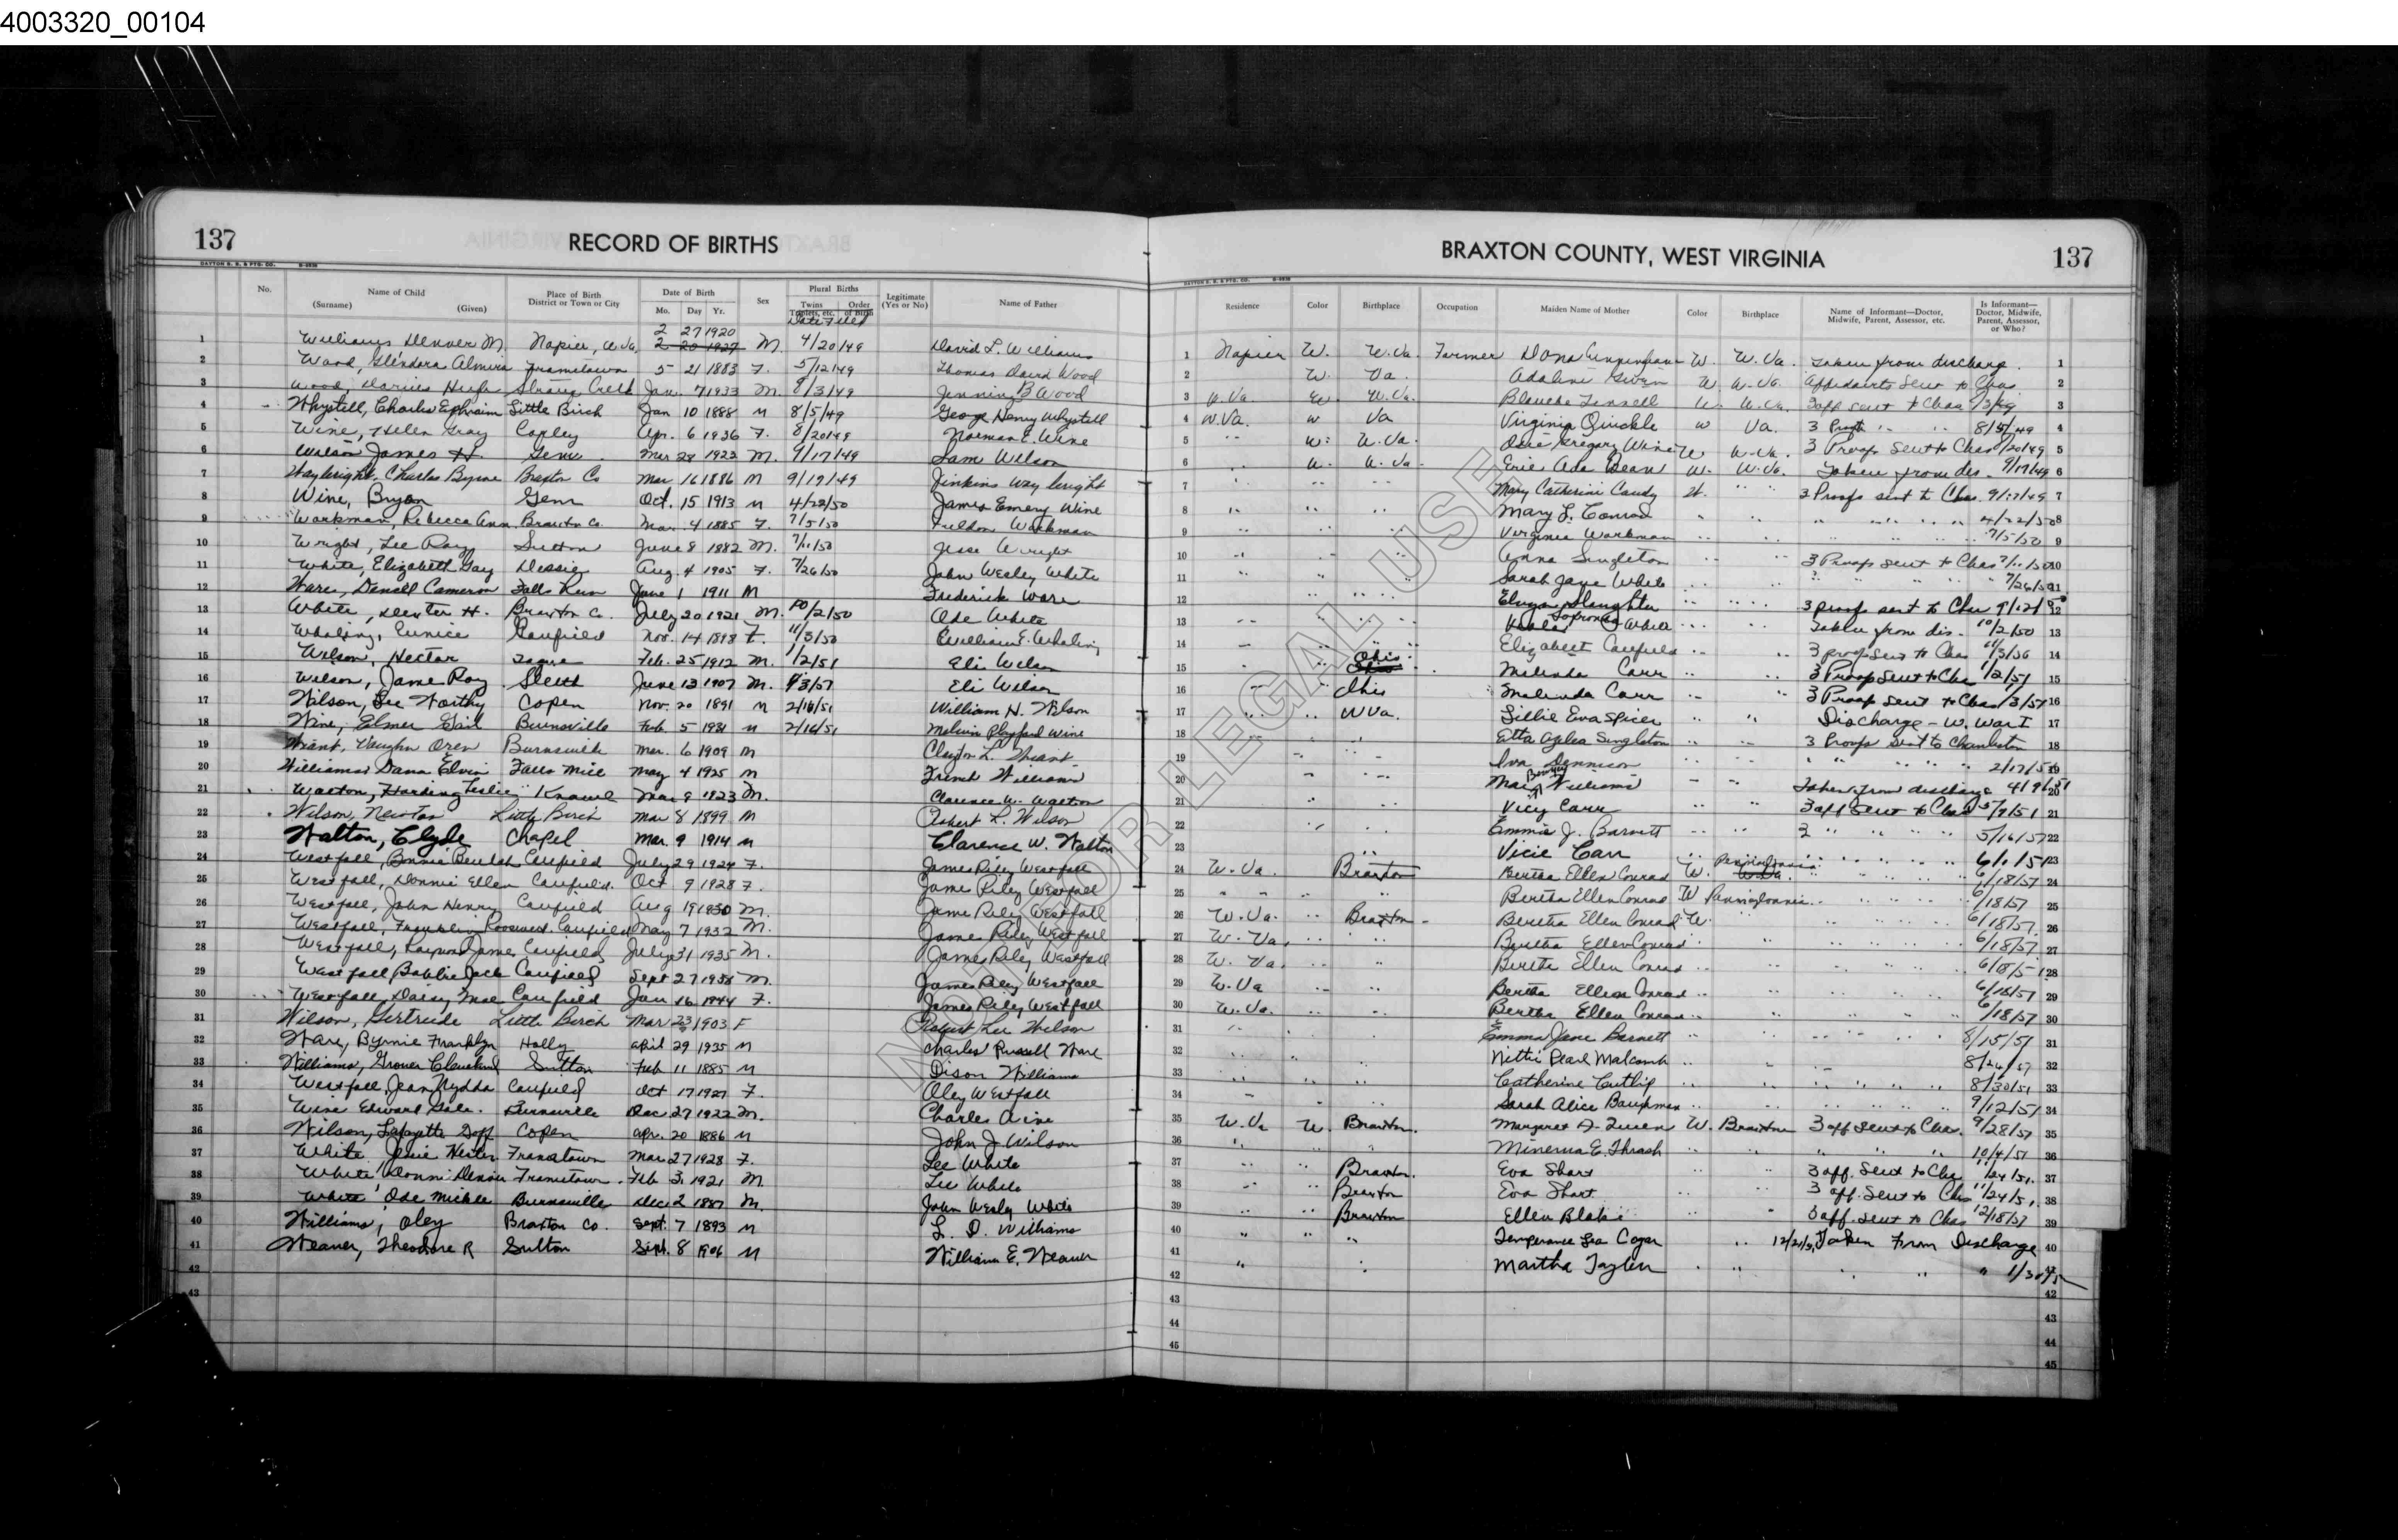 4003320_00104
137 RECORD OF BIRTHS
BRAXTON COUNTY, WEST VIRGINIA 137
No. Name of Child (Surname) (Given) Place of Birth District or Town or City Date of Birth Mo. Day Yr. Sex Plural Births Twins Triplets, etc. Order of Birth Date Filed Legitimate (Yes or No) Name of Father
Residence Color Birthplace Occupation Maiden Name of Mother Color Birthplace Name of Informant—Doctor, Midwife, Parent, Assessor, etc. Is Informant—Doctor, Midwife, Parent, Assessor, or Who?
1 Williams Denver M. Napier, W.Va. 2 27 1920 2 20 1927 M. 4/20/49 David L. Williams
2 Wood, Glendora Almira Frametown 5 21 1883 F. 5/12/49 Thomas David Wood
3 Wood Darius Hugh Strange Creek Jan. 7 1933 M. 8/3/49 Jenning B Wood
4 Whystell, Charles Ephraim Little Birch Jan 10 1888 M 8/5/49 George Henry Whystell
5 Wine, Helen Gray Copley Apr. 6 1936 F. 8/20/49 Norman E. Wine
6 Wilson James H. Gem Mar 28 1922 M. 9/17/49 Sam Wilson
7 Waybright, Charles Byrne Braxton Co Mar 16 1886 M 9/19/49 Jinkins Waybright
8 Wine, Bryan Gem Oct. 15 1913 M 4/22/50 James Emery Wine
9 Workman, Rebecca Ann Braxton Co. Mar. 4 1885 F. 7/5/50 Workman
10 Wright, Lee Ray Sutton June 8 1882 M. 7/11/50 Jesse Wright
11 White, Elizabeth Gay Dessie Aug. 4 1905 F. 7/26/50 John Wesley White
12 Ware, Denzil Cameron Falls Run June 1 1911 M Frederick Ware
13 White, Dexter H. Braxton Co. July 20 1921 M. 10/2/50 Ode White
14 Whaling, Eunice Canfield Nov. 14 1898 F. 11/3/50 William E. Whaling
15 Wilson, Hector Feb. 25 1912 M. 1/2/51 Eli Wilson
16 Wilson, Jame Ray Sleeth June 13 1907 M. 1/3/51 Eli Wilson
17 Wilson, Lee Worthy Copen Nov. 20 1891 M 2/16/51 William H. Wilson
18 Wine, Elmer Gail Burnsville Feb. 5 1931 M 2/16/51 Melvin Playford Wine
19 Wiant, Vaughn Oren Burnsville Mar. 6 1909 M Clayton L. Wiant
20 Williams Dana Elvin Falls Mill May 4 1925 M French Williams
21 Walton, Harding Leslie Knawl Mar 9 1923 M. Clarence W. Walton
22 Wilson, Newton Little Birch Mar 8 1899 M Robert L. Wilson
23 Walton, Clyde Chapel Mar. 9 1914 M Clarence W. Walton
24 Westfall, Bonnie Beulah Canfield July 29 1924 F. James Riley Westfall
25 Westfall, Donnie Ellen Canfield. Oct 9 1928 F. Jame Riley Westfall
26 Westfall, John Henry Canfield Aug 19 1930 M. Jame Riley Westfall
27 Westfall, Franklin Roosevelt Canfield May 7 1932 M. James Riley Westfall
28 Westfall, James Canfield July 31 1935 M. James Riley Westfall
29 Westfall Bobbie Jack Canfield Sept 27 1938 M. James Riley Westfall
30 Westfall, Daisy Mae Canfield Jan 16 1944 F. James Riley Westfall
31 Wilson, Gertrude Little Birch Mar 23 1903 F Robert Lee Wilson
32 Ware, Byrnie Franklyn Holly April 29 1925 M Charles Russell Ware
33 Williams, Grover Cleveland Sutton Feb 11 1885 M Dison Williams
34 Westfall, Jean Nydda Canfield Oct 17 1927 F. Oley Westfall
35 Wine Edward Gale. Burnsville Dec 27 1922 M. Charles Wine
36 Wilson, Lafayette Goff Copen Apr. 20 1886 M John J. Wilson
37 White Jessie Hester Frametown Mar 27 1928 F. Lee White
38 White Denver Frametown. Feb 3, 1921 M Lee White
39 White, Ode Mickle Burnsville Dec 2 1887 M. John Wesley White
40 Williams, Oley Braxton Co. Sept. 7 1893 M L. D. Williams
41 Weaver, Theodore R Sutton Sept. 8 1906 M William E. Weaver
42
43
1 Napier W. W.Va. Farmer Dona Cunningham W. W.Va. Taken from discharge. 1
2 W. Va. Adaline Given W W.Va. Affidavits sent to Chas 2
3 W.Va. W W.Va. Blanche W. W.Va. 3 aff sent to Chas 3
4 W.Va. W Va Virginia Quickle W Va. 3 Proofs " " 8/5/49 4
5 " W. W.Va. Gregory Wine W W.Va. 3 Proofs sent to Chas 8/20/49 5
6 W. W.Va. Ada Dean W. W.Va. Taken from dis. 9/17/49 6
7 " " " Mary Catherine Candy W. " " 3 Proofs sent to Chas. 9/19/49 7
8 " " " Mary L. Conrad " " " " " 4/22/50 8
9 " " " Virginia Workman " " " " " 7/5/50 9
10 " " " Anna Singleton " " 3 Proofs sent to Chas 7/11/50 10
11 " " " Sarah Jane White " " " " 7/26/50 11
12 " " " Slaughter " " 3 proofs sent to Chas 9/12/50 12
13 " " " White " " Taken from dis. 10/2/50 13
14 " " " Elizabeth Canfield " " 3 proofs sent to Chas 11/3/50 14
15 " " Ohio Malinda Carr " " 3 Proofs sent to Chas 1/2/51 15
16 " " Ohio Malinda Carr " " 3 Proofs sent to Chas 1/3/51 16
17 " " W Va. Lillie Eva Spicer " " Discharge - W. War I 17
18 " " " Etta Azlea Singleton " " 3 Proofs sent to Charleston 18
19 " " " Iva Dennison " " " " 2/17/51 19
20 " " " Williams " " Taken from discharge 4/9/51 20
21 " " " Vicy Carr " " 3 aff sent to Chas 5/9/51 21
22 " " " Emma J. Barnett " " 3 " " " " 5/16/51 22
23 " " " Vicie Carr " " " " " " 6/1/51 23
24 W.Va. " Braxton Bertha Ellen Conrad W. Pennsylvania " " " 6/18/51 24
25 " " " " Bertha Ellen Conrad W Pennsylvania " " " 6/18/51 25
26 W.Va. " Braxton Bertha Ellen Conrad W. " " " 6/18/51 26
27 W. Va. " " Bertha Ellen Conrad " " " " 6/18/51 27
28 W. Va. " " Bertha Ellen Conrad " " " " 6/18/51 28
29 W.Va " " Bertha Ellen Conrad " " " " 6/18/51 29
30 W.Va. " " Bertha Ellen Conrad " " " " 6/18/51 30
31 " " " Emma Jane Barnett " " " " 8/15/51 31
32 " " " Nettie Pearl Malcomb " " 8/24/51 32
33 " " " Catherine Cutlip " " " " " 8/30/51 33
34 " " " Sarah Alice Baughman " " " " " 9/12/51 34
35 W.Va W. Braxton. Margaret A. Queen W. Braxton 3 aff sent to Chas. 9/28/51 35
36 " " " Minerva E. Thrash " " " " " 10/4/51 36
37 " " Braxton. Eva Short " " 3 aff. sent to Chas 11/24/51. 37
38 " " Braxton Eva Short " " 3 aff. sent to Chas 11/24/51, 38
39 " " Braxton Ellen Blake " " 3 aff. sent to Chas 12/18/51 39
40 " " " Temperance Coger " 12/21/51 Taken From Discharge 40
41 " " Martha Taylor " " " " " 1/30/5 41
42 42
43 43
44 44
45 45
NOT FOR LEGAL USE